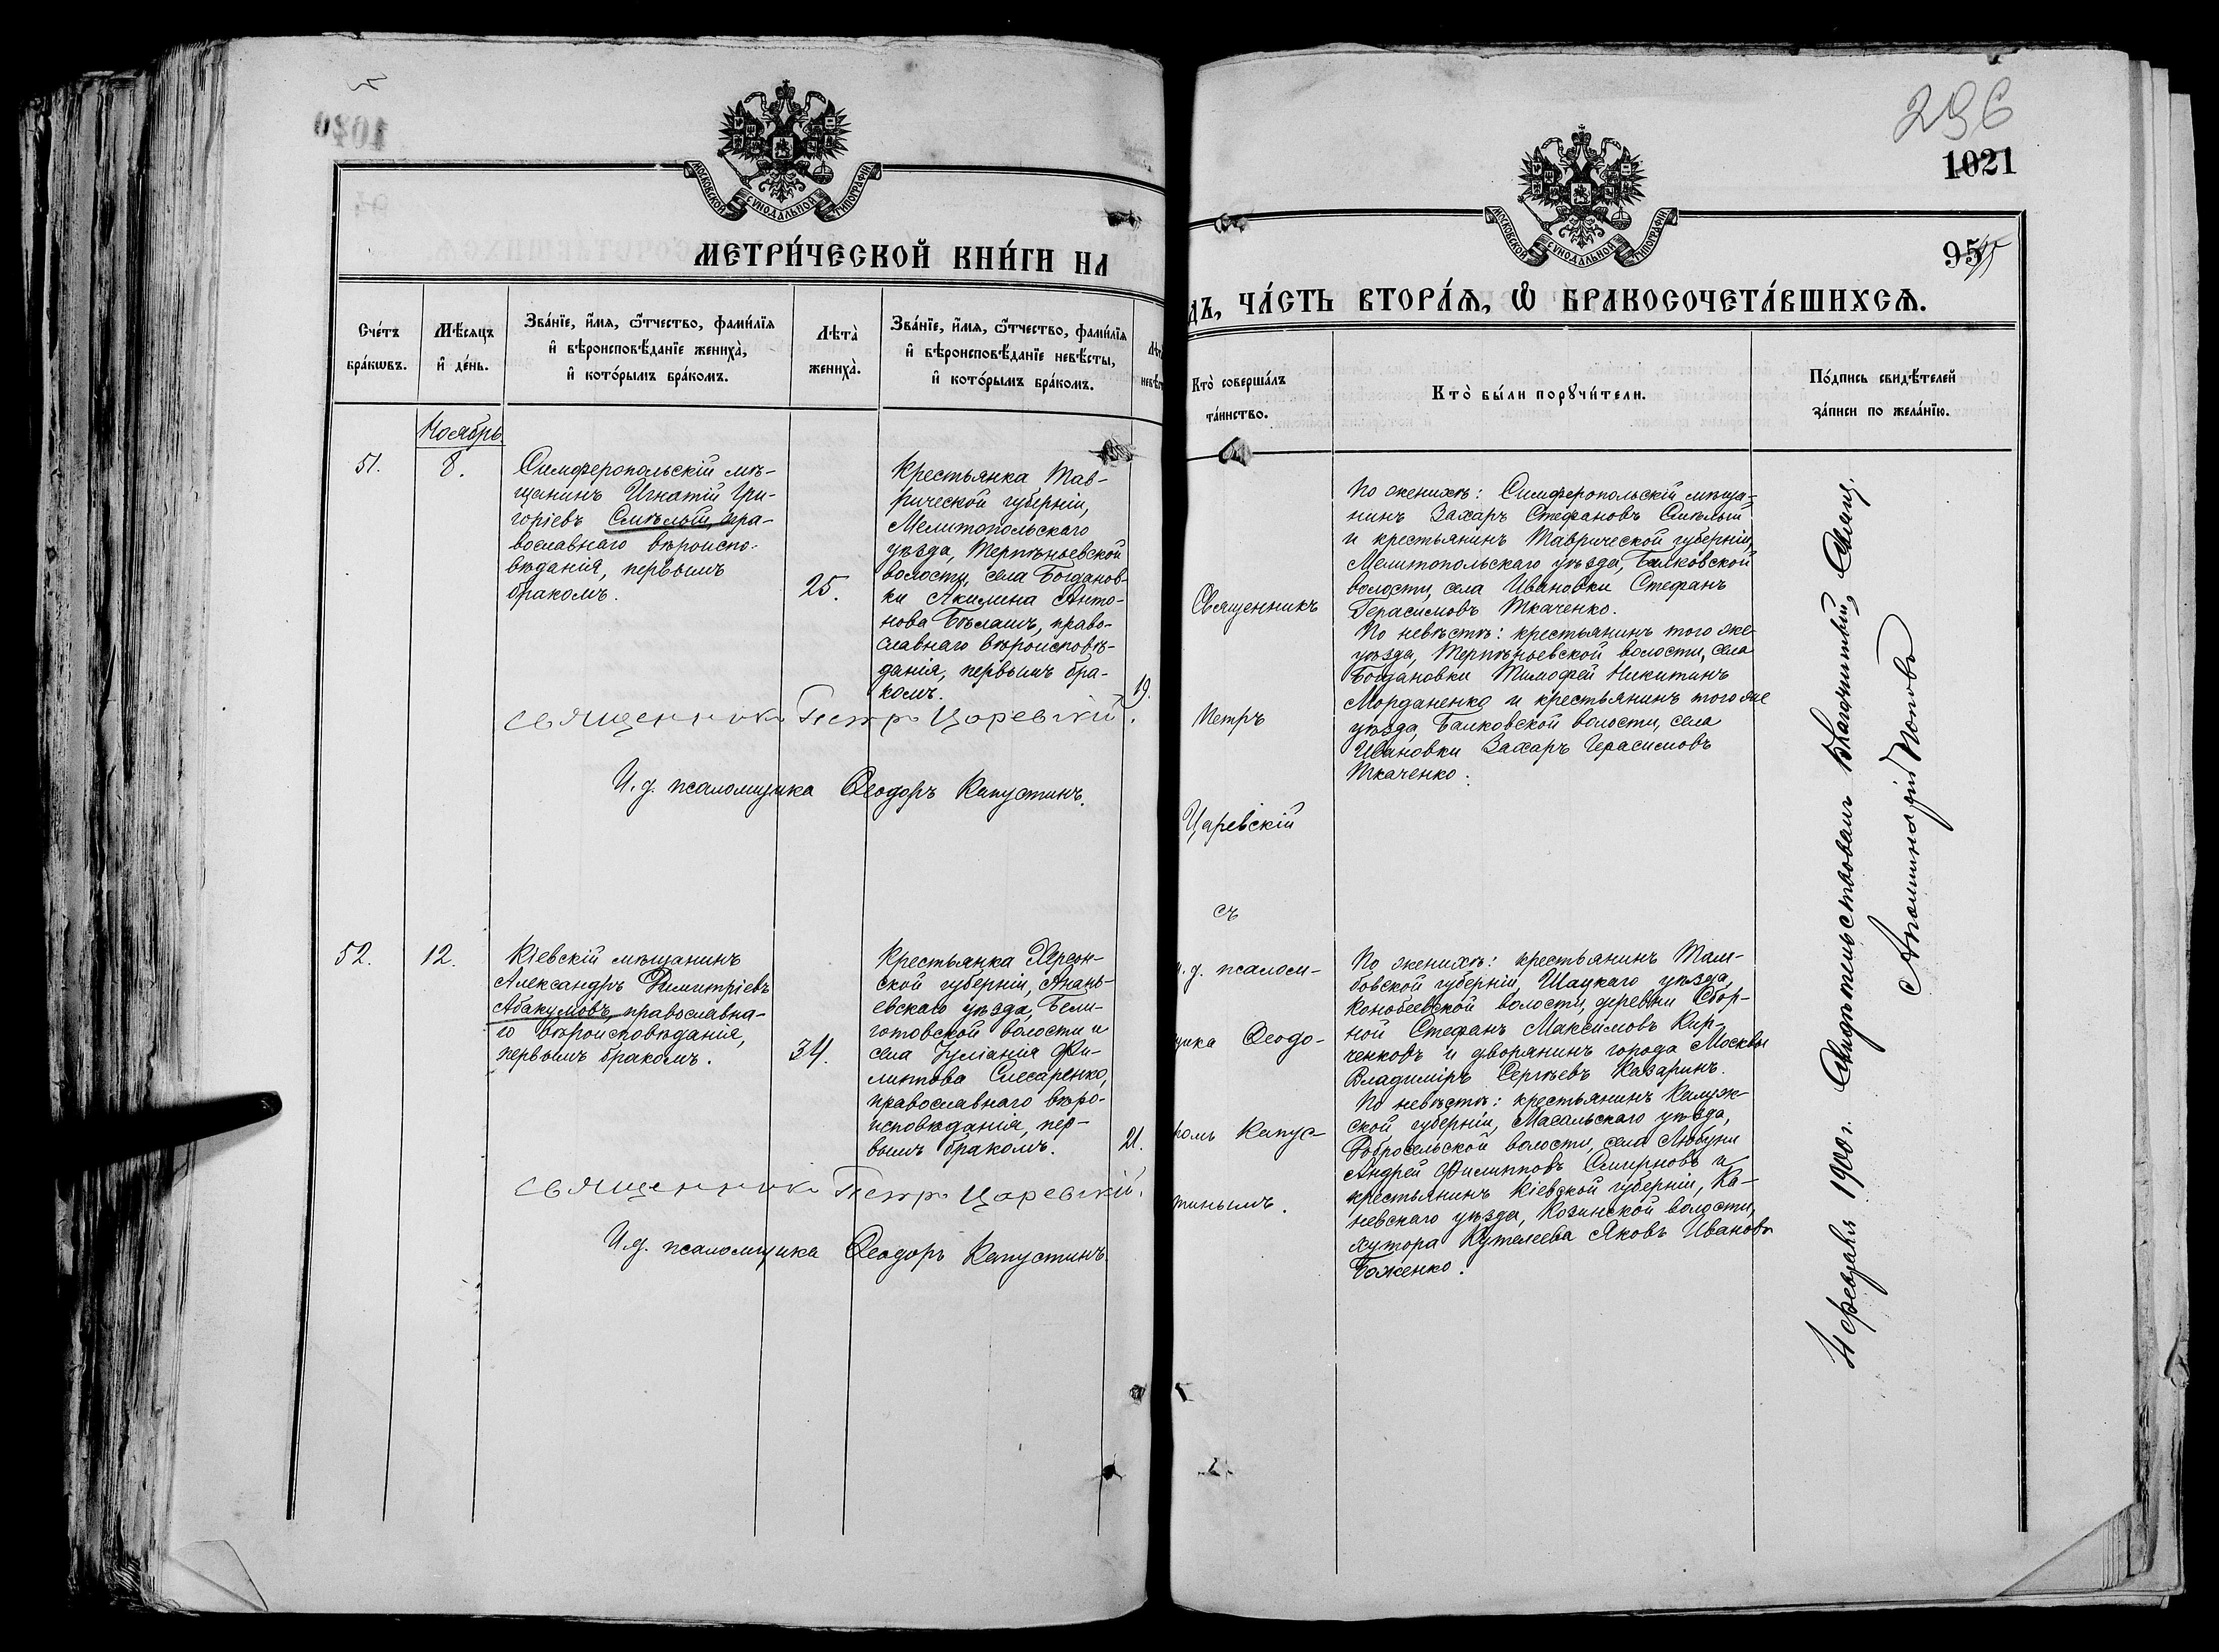 1020
МОСКОВСКОЙ СѴНОДАЛЬНОЙ ТИПОГРАФІИ
МЕТРИ́ЧЕСКОЙ КНИ́ГИ НА
Сче́тъ бра́кѡвъ.
Мѣ́сяцъ и҆ де́нь.
Зва́нїе, и҆́мя, ѻ҆́тчество, фами́лїя и҆ вѣроисповѣ́данїе жениха̀, и҆ кото́рымъ бра́комъ.
Лѣта̀ жениха̀.
Зва́нїе, и҆́мя, ѻ҆́тчество, фами́лїя и҆ вѣроисповѣ́данїе невѣ́сты, и҆ кото́рымъ бра́комъ.
Ноябрь
51.
8.
Симферопольскій мѣ-
щанинъ Игнатій Гри-
горіевъ Смѣлый, пра-
вославнаго вѣроиспо-
вѣданія, первымъ
бракомъ.
25.
Крестьянка Тав-
рической губерніи,
Мелитопольскаго
уѣзда, Терпѣньевской
волости, села Богданов-
ки Акилина Анто-
нова Бѣлашъ, право-
славнаго вѣроисповѣ-
данія, первымъ бра-
комъ.
19.
Священникъ Петръ Царевскій.
И. д. псаломщика Ѳеодоръ Капустинъ.
52.
12.
Кіевскій мѣщанинъ
Александръ Димитріевъ
Абакумовъ, православна-
го вѣроисповѣданія,
первымъ бракомъ.
34.
Крестьянка Херсон-
ской губерніи, Анань-
евскаго уѣзда,
волости и
села Іуліанія Фи-
липпова Слесаренко,
православнаго вѣро-
исповѣданія, пер-
вымъ бракомъ.
21.
Священникъ Петръ Царевскій.
И. д. псаломщика Ѳеодоръ Капустинъ.
296
1021
МОСКОВСКОЙ СѴНОДАЛЬНОЙ ТИПОГРАФІИ
95
ДЪ, ЧА́СТЬ ВТОРА́Ѧ, Ѽ БРАКОСОЧЕТА́ВШИХСѦ.
Кто̀ соверша́лъ та́инство.
Кто̀ бы́ли порꙋчи́тели.
По́дпись свидѣ́телей за́писи по жела́нїю.
Священникъ
Петръ
Царевскій
съ
и. д. псалом-
щика Ѳеодо-
ромъ Капус-
тинымъ.
По женихѣ: Симферопольскій мѣща-
нинъ Захаръ Стефановъ Смѣлый
и крестьянинъ Таврической губерніи,
Мелитопольскаго уѣзда, Балковской
волости, села Ивановки Стефанъ
Герасимовъ Ткаченко.
По невѣстѣ: крестьянинъ того же
уѣзда, Терпѣньевской волости, села
Богдановки Тимофей Никитинъ
Морданенко и крестьянинъ того же
уѣзда, Балковской волости, села
Ивановки Захаръ Герасимовъ
Ткаченко.
По женихѣ: крестьянинъ Там-
бовской губерніи, Шацкаго уѣзда,
Конобеевской волости, деревни Сбор-
ной Стефанъ Максимовъ Кир-
ченковъ и дворянинъ города Москвы
Владиміръ Сергѣевъ Казаринъ.
По невѣстѣ: крестьянинъ Калуж-
ской губерніи, Масальскаго уѣзда,
Добросельской волости, села Любуни
Андрей Филипповъ Смирновъ и
крестьянинъ Кіевской губерніи, Ка-
невскаго уѣзда, Козинской волости,
хутора Кутелеева Яковъ Ивановъ
Боженко.
4 февраля 1900 г. Свидѣтельствовалъ Благочинный, Свящ.
Аполлинарій Поповъ